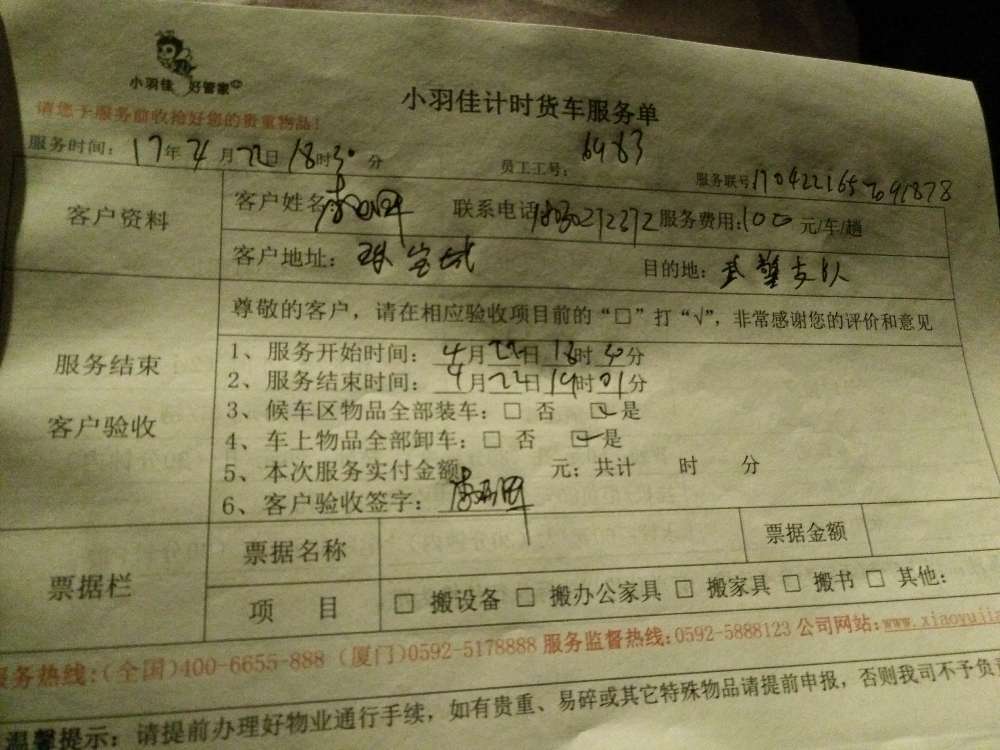 小羽佳 好管家
小羽佳计时货车服务单
请您于服务前收拾好您的贵重物品！
服务时间：17年4月22日18时30分 员工工号：6983 服务联号
客户资料
客户姓名 联系电话 服务费用:100元/车/趟
客户地址： 目的地：武警支队
服务结束
客户验收
尊敬的客户，请在相应验收项目前的“□”打“√”，非常感谢您的评价和意见
1、服务开始时间：4月22日18时30分
2、服务结束时间：4月22日19时01分
3、候车区物品全部装车：□ 否 ☑是
4、车上物品全部卸车：□ 否 ☑是
5、本次服务实付金额 元；共计 时 分
6、客户验收签字：
票据栏
票据名称 票据金额
项 目 □ 搬设备 □ 搬办公家具 □ 搬家具 □ 搬书 □ 其他：
服务热线:(全国)400-6655-888 (厦门)0592-5178888 服务监督热线:0592-5888123 公司网站:www.xiaoyujia
温馨提示：请提前办理好物业通行手续，如有贵重、易碎或其它特殊物品请提前申报，否则我司不予负